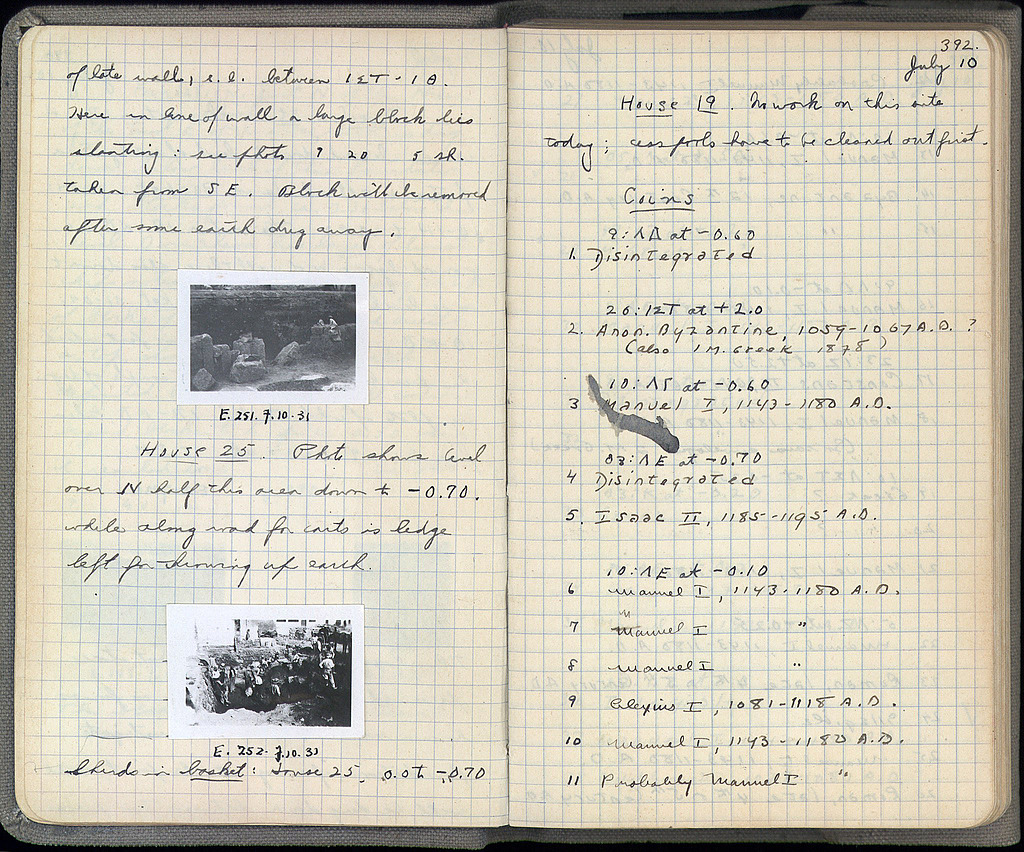 of late walls, s. e. between ΙΣΤ - ΙΘ.
Here in line of wall a large block lies
slanting: see photo 9 20 5 sh.
taken from S E. Block will be removed
after some earth dug away.
E. 251. 7.10.31
House 25. Photo shows level
over N half this area down to -0.70.
while along road for carts is ledge
left for throwing up earth.
E. 252. 7.10.31
Sherds in basket: House 25, 0.0 to -0.70
392.
July 10
House 19. No work on this site
today; cess pools have to be cleaned out first.
Coins
9:ΛΔ at -0.60
1. Disintegrated
26:ΙΣΤ at +2.0
2. Anon. Byzantine, 1059-1067 A.D. ?
(also 1 M. Greek 1878)
10:ΛΓ at -0.60
3 Manuel I, 1143-1180 A.D.
03:ΛΕ at -0.70
4 Disintegrated
5. Isaac II, 1185-1195 A.D.
10:ΛΕ at -0.10
6 Manuel I, 1143-1180 A.D.
7 Manuel I "
8 Manuel I "
9 Alexius I, 1081-1118 A.D.
10 Manuel I, 1143-1180 A.D.
11 Probably Manuel I "